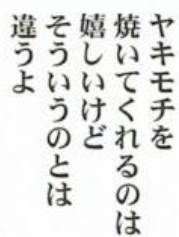 ヤキモチを
焼いてくれるのは
嬉しいけど
そういうのとは
違うよ